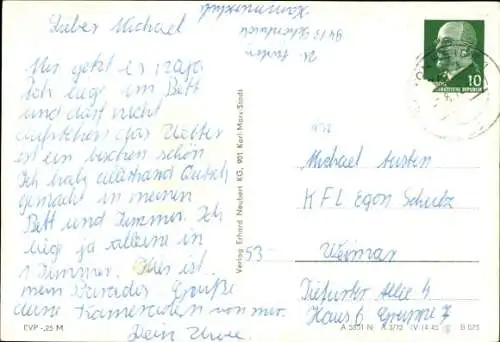 Lieber Michael
Mir geht es
Ich liege im Bett
und darf nicht
aufstehen das Wetter
ist ein bischen schön
Ich habe allerhand Quatsch
gemacht in meinen
Bett und Zimmer. Ich
liege ja alleine in
1 Zimmer. Hier ist
mein Grüße
deine Kameraden von mir.
Dein Uwe.
EVP -,25 M
Verlag Erhard Neubert KG, 901 Karl-Marx-Stadt
10
Michael
KFL Egon Schultz
53- Weimar
Tiefurter Allee 4
Haus 6 Gruppe 7
A 5851 N A 3/72 IV-14-45 B 075